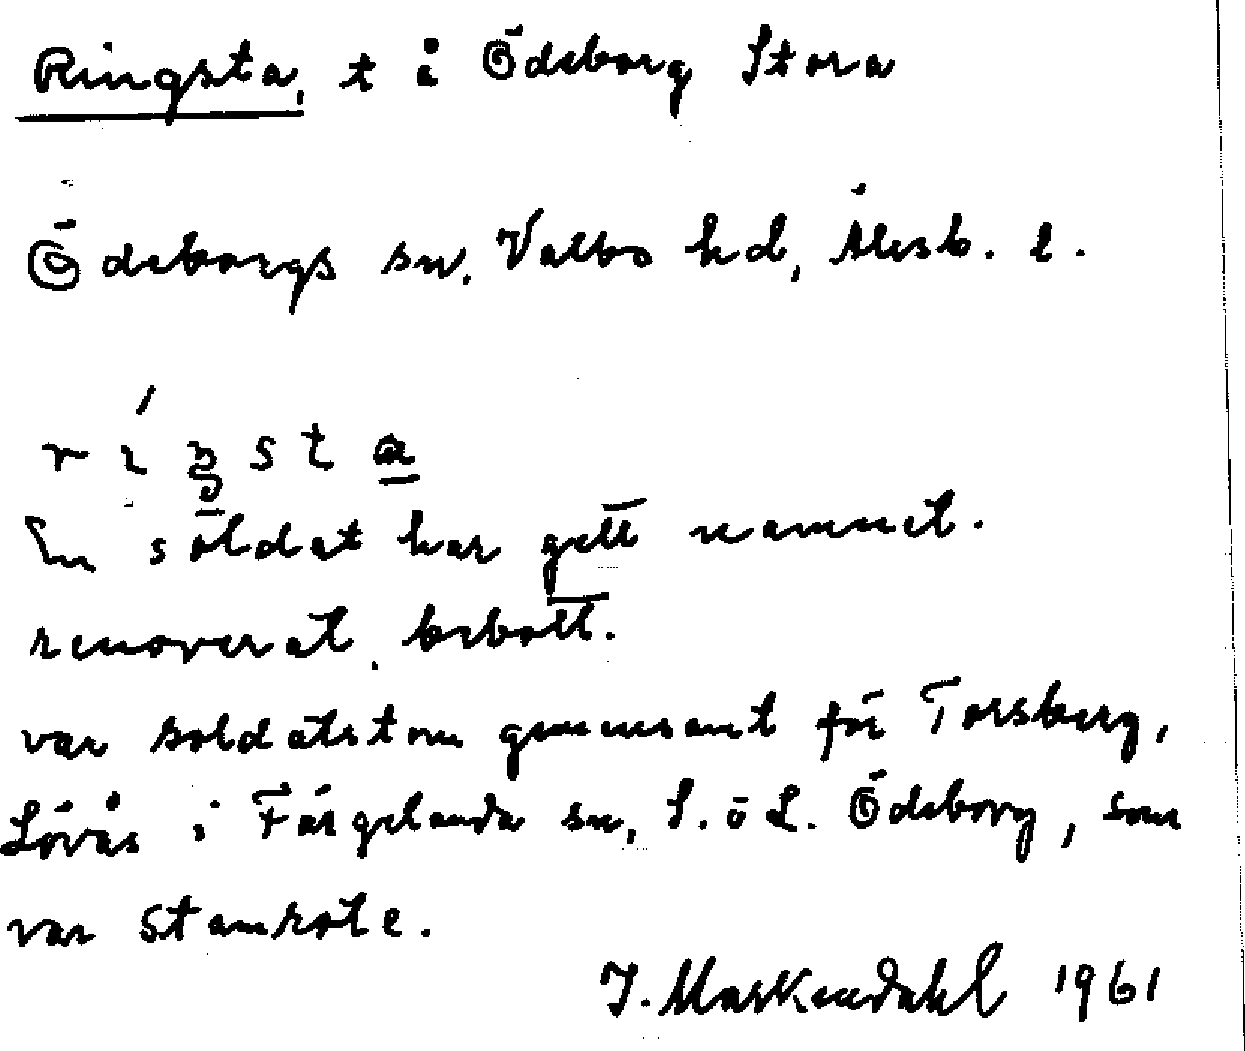 Ringsta, t å Ödeborg Stora
Ödeborgs sn, Valbo hd, Älvsb. l.
rɩ́ŋsta
En soldat har gett namnet.
renoverat, bebott.
var soldatstom gemensamt för Torsberg,
Lövås i Färgelanda sn, S. o L. Ödeborg, som
var stamrote.
J. Markendahl 1961